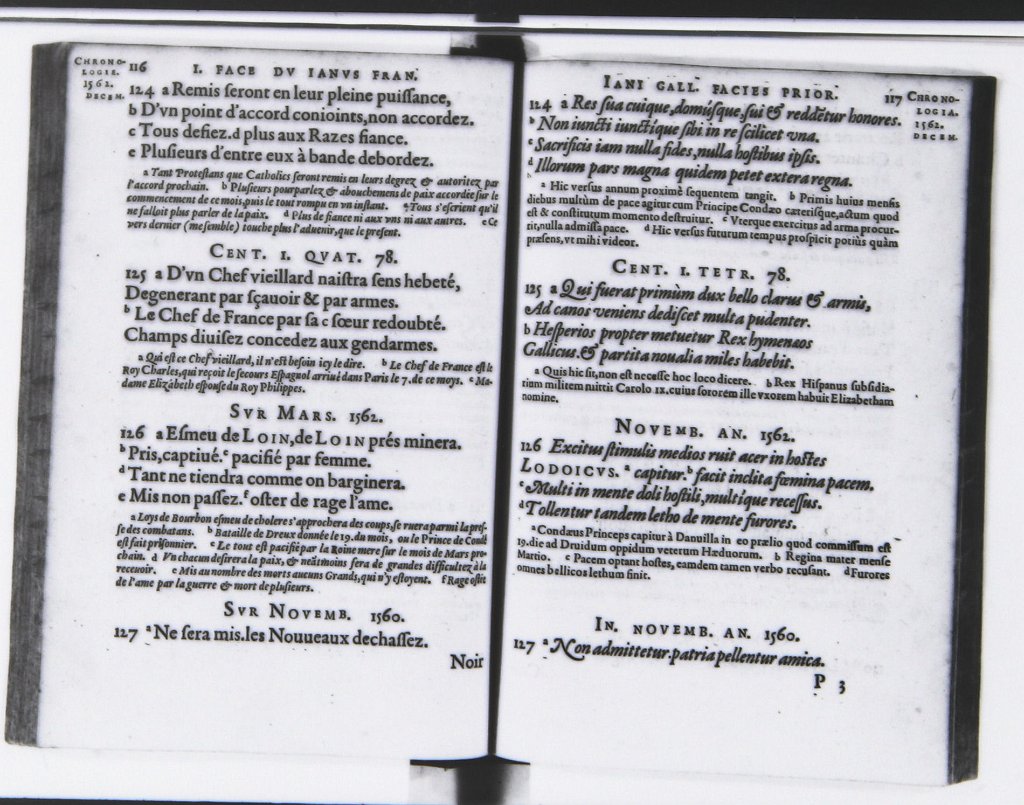 CHRONO-
LOGIE.
1562.
DECEM.
116 I. FACE DV IANVS FRAN.
124 a Remis ſeront en leur pleine puiſſance,
b D'vn point d'accord conioints, non accordez.
c Tous defiez. d plus aux Razes fiance.
e Pluſieurs d'entre eux à bande debordez.
a Tant Proteſtans que Catholics ſeront remis en leurs degrez & autoritez par
l'accord prochain. b Pluſieurs pourparlez & abouchemens de paix accordée ſur le
commencement de ce mois, puis le tout rompu en vn inſtant. c Tous s'eſcrient qu'il
ne falloit plus parler de la paix. d Plus de fiance ni aux vns ni aux autres. e Ce
vers dernier (me ſemble) touche plus l'aduenir, que le preſent.
CENT. I. QVAT. 78.
125 a D'vn Chef vieillard naiſtra ſens hebeté,
Degenerant par ſçauoir & par armes.
b Le Chef de France par ſa c ſœur redoubté.
Champs diuiſez concedez aux gendarmes.
a Qui eſt ce Chef vieillard, il n'eſt beſoin icy le dire. b Le Chef de France eſt le
Roy Charles, qui reçoit le ſecours Eſpagnol arriué dans Paris le 7. de ce moys. c Ma-
dame Elizabeth eſpouſe du Roy Philippes.
SVR MARS. 1562.
126 a Eſmeu de LOIN, de LOIN prés minera.
b Pris, captiué. c pacifié par femme.
d Tant ne tiendra comme on barginera.
e Mis non paſſez. f oſter de rage l'ame.
a Loys de Bourbon eſmeu de cholere s'approchera des coups, ſe ruera parmi la preſ-
ſe des combatans. b Bataille de Dreux donnée le 19. du mois, ou le Prince de Condé
eſt fait priſonnier. c Le tout eſt pacifié par la Roine mere ſur le mois de Mars pro-
chain. d Vn chacun deſirera la paix, & neãtmoins ſera de grandes difficultez à la
receuoir. e Mis au nombre des morts aucuns Grands, qui n'y eſtoyent. f Rage oſtée
de l'ame par la guerre & mort de pluſieurs.
SVR NOVEMB. 1560.
127 a Ne ſera mis. les Nouueaux dechaſſez.
Noir
IANI GALL. FACIES PRIOR. 117
CHRONO-
LOGIA.
1562.
DECEM.
124 a Res ſua cuique, domúſque, ſui & reddētur honores.
b Non iuncti iunctíque ſibi in re ſcilicet vna.
c Sacrificis iam nulla fides, nulla hoſtibus ipſis.
d Illorum pars magna quidem petet extera regna.
a Hic verſus annum proximè ſequentem tangit. b Primis huius menſis
diebus multùm de pace agitur cum Principe Condæo cæteriſque, actum quod
eſt & conſtitutum momento deſtruitur. c Vterque exercitus ad arma procur-
rit, nulla admiſſa pace. d Hic verſus futurum tempus proſpicit potiùs quàm
præſens, vt mihi videor.
CENT. I. TETR. 78.
125 a Qui fuerat primùm dux bello clarus & armis,
Ad canos veniens dediſcet multa pudenter.
b Heſperios propter metuetur Rex hymenæos
Gallicus. & partita noualia miles habebit.
a Quis hic ſit, non eſt neceſſe hoc loco dicere. b Rex Hiſpanus ſubſidia-
rium militem mittit Carolo IX. cuius ſororem ille vxorem habuit Elizabetham
nomine.
NOVEMB. AN. 1562.
126 Excitus ſtimulis medios ruit acer in hoſtes
LODOICVS. a capitur. b facit inclita fœmina pacem.
c Multi in mente doli hoſtili, multique receſſus.
d Tollentur tandem letho de mente furores.
a Condæus Princeps capitur à Danuilla in eo prælio quod commiſſum eſt
19. die ad Druidum oppidum veterum Hæduorum. b Regina mater menſe
Martio. c Pacem optant hoſtes, eamdem tamen verbo recuſant. d Furores
omnes bellicos lethum finit.
IN NOVEMB. AN. 1560.
127 a Non admittetur. patria pellentur amica.
P 3